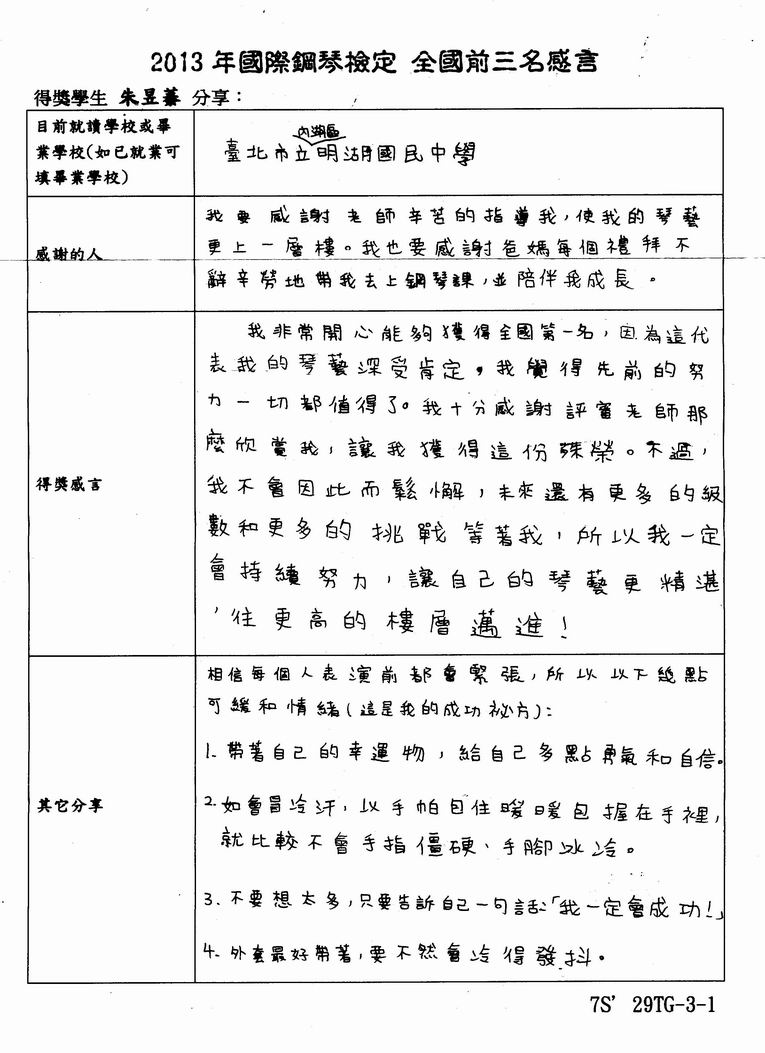 2013 年國際鋼琴檢定 全國前三名感言
得獎學生 朱昱蓁 分享：
目前就讀學校或畢
業學校(如已就業可
填畢業學校)
內湖區
臺北市立明湖國民中學
感謝的人
我要感謝老師辛苦的指導我，使我的琴藝
更上一層樓。我也要感謝爸媽每個禮拜不
辭辛勞地帶我去上鋼琴課，並陪伴我成長。
得獎感言
我非常開心能夠獲得全國第一名，因為這代
表我的琴藝深受肯定。我覺得先前的努
力一切都值得了。我十分感謝評審老師那
麼欣賞我，讓我獲得這份殊榮。不過，
我不會因此而鬆懈，未來還有更多的級
數和更多的挑戰等著我，所以我一定
會持續努力，讓自己的琴藝更精湛
，往更高的樓層邁進！
其它分享
相信每個人表演前都會緊張，所以以下幾點
可緩和情緒(這是我的成功祕方)：
1. 帶著自己的幸運物，給自己多點勇氣和自信。
2. 如會冒冷汗，以手帕包住暖暖包握在手裡，
就比較不會手指僵硬、手腳冰冷。
3. 不要想太多，只要告訴自己一句話：「我一定會成功！」
4. 外套最好帶著，要不然會冷得發抖。
7S' 29TG-3-1